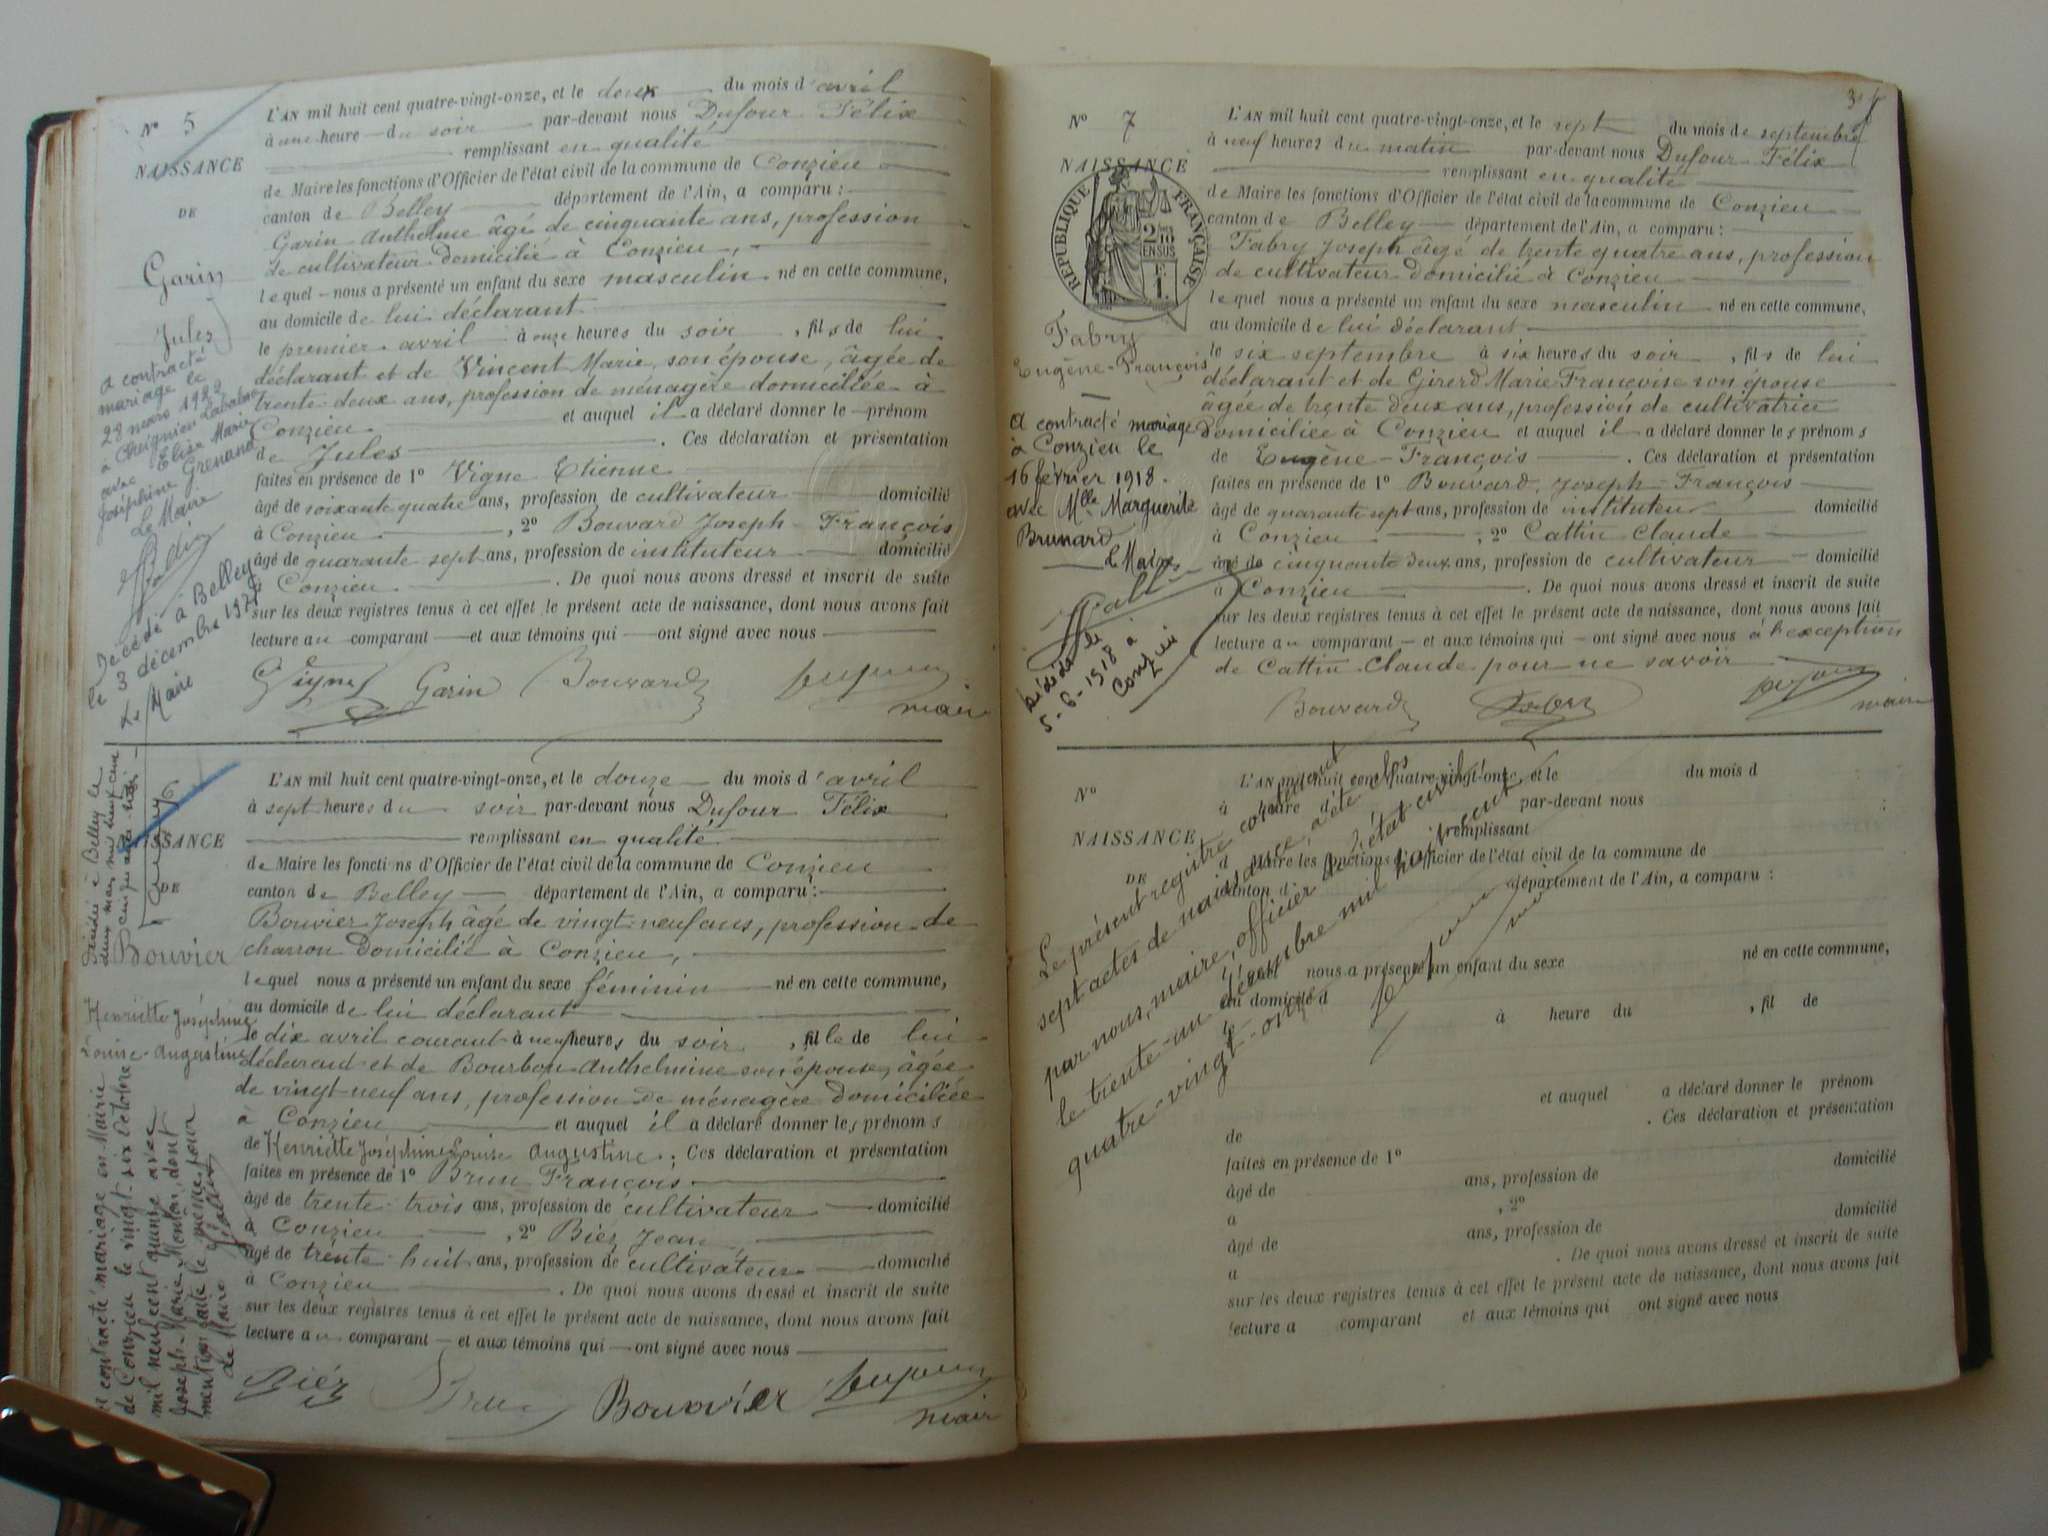 Nº 5
NAISSANCE
DE
Garin
Jules
a contracté
mariage le
28 mars
à Cheignieu Labalme
avec Elise Marie
Joséphine Grenand
Le Maire
Décédé à Belley
le 3 décembre
Le Maire
L'AN mil huit cent quatre-vingt-onze, et le deux du mois d'avril
à une heure du soir par-devant nous Dufour Félix
remplissant en qualité
de Maire les fonctions d'Officier de l'état civil de la commune de Conzieu
canton de Belley département de l'Ain, a comparu :
Garin Anthelme âgé de cinquante ans, profession
de cultivateur domicilié à Conzieu,
lequel nous a présenté un enfant du sexe masculin né en cette commune,
au domicile de lui déclarant
le premier avril à onze heures du soir, fils de lui
déclarant et de Vincent Marie, son épouse, âgée de
trente deux ans, profession de ménagère domiciliée à
Conzieu et auquel il a déclaré donner le prénom
de Jules. Ces déclaration et présentation
faites en présence de 1º Vigne Etienne
âgé de soixante quatre ans, profession de cultivateur domicilié
à Conzieu, 2º Bouvard Joseph-François
âgé de quarante sept ans, profession de instituteur domicilié
à Conzieu. De quoi nous avons dressé et inscrit de suite
sur les deux registres tenus à cet effet le présent acte de naissance, dont nous avons fait
lecture au comparant et aux témoins qui ont signé avec nous
Vigne Garin Bouvard Dufour
maire
6
NAISSANCE
DE
Bouvier
Henriette Joséphine
Louise-Augustine
Décédée à Belley le
deux mars mil neuf cent
cinquante trois
a contracté mariage en Mairie
de Conzieu le vingt-six octobre
mil neuf cent quinze avec
Joseph-Marie Montin dont
mention faite le même jour
Le Maire
L'AN mil huit cent quatre-vingt-onze, et le douze du mois d'avril
à sept heures du soir par-devant nous Dufour Félix
remplissant en qualité
de Maire les fonctions d'Officier de l'état civil de la commune de Conzieu
canton de Belley département de l'Ain, a comparu :
Bouvier Joseph âgé de vingt-neuf ans, profession de
charron domicilié à Conzieu,
lequel nous a présenté un enfant du sexe féminin né en cette commune,
au domicile de lui déclarant
le dix avril courant à neuf heures du soir, fille de lui
déclarant et de Bourbon Anthelmine son épouse, âgée
de vingt-neuf ans, profession de ménagère domiciliée
à Conzieu et auquel il a déclaré donner les prénoms
de Henriette Joséphine Louise Augustine. Ces déclaration et présentation
faites en présence de 1º Brun François
âgé de trente-trois ans, profession de cultivateur domicilié
à Conzieu, 2º Biéz Jean
âgé de trente-huit ans, profession de cultivateur domicilié
à Conzieu. De quoi nous avons dressé et inscrit de suite
sur les deux registres tenus à cet effet le présent acte de naissance, dont nous avons fait
lecture au comparant et aux témoins qui ont signé avec nous
Biéz Brun Bouvier Dufour
maire
3
Nº 7
NAISSANCE
RÉPUBLIQUE FRANÇAISE
Fabry
Eugène-François
a contracté mariage
à Conzieu le
16 février 1918
avec Mlle Marguerite
Brunard
Le Maire
décédé le
5-6-1918 à
Conzieu
L'AN mil huit cent quatre-vingt-onze, et le sept du mois de septembre
à neuf heures du matin par-devant nous Dufour Félix
remplissant en qualité
de Maire les fonctions d'Officier de l'état civil de la commune de Conzieu
canton de Belley département de l'Ain, a comparu :
Fabry Joseph âgé de trente quatre ans, profession
de cultivateur domicilié à Conzieu
lequel nous a présenté un enfant du sexe masculin né en cette commune,
au domicile de lui déclarant
le six septembre à six heures du soir, fils de lui
déclarant et de Girerd Marie Françoise son épouse
âgée de trente deux ans, profession de cultivatrice
domiciliée à Conzieu et auquel il a déclaré donner les prénoms
de Eugène-François. Ces déclaration et présentation
faites en présence de 1º Bouvard Joseph-François
âgé de quarante sept ans, profession de instituteur domicilié
à Conzieu, 2º Cattin Claude
âgé de cinquante deux ans, profession de cultivateur domicilié
à Conzieu. De quoi nous avons dressé et inscrit de suite
sur les deux registres tenus à cet effet le présent acte de naissance, dont nous avons fait
lecture au comparant et aux témoins qui ont signé avec nous à l'exception
de Cattin Claude pour ne savoir
Bouvard Fabry Dufour
maire
Nº
NAISSANCE
DE
L'AN mil huit cent quatre-vingt-onze, et le du mois d
à heure d par-devant nous
remplissant
d Maire les fonctions d'Officier de l'état civil de la commune de
canton d département de l'Ain, a comparu :
lequel nous a présenté un enfant du sexe né en cette commune,
au domicile d
le à heure du , fil de
et auquel a déclaré donner le prénom
de . Ces déclaration et présentation
faites en présence de 1º
âgé de ans, profession de domicilié
à , 2º
âgé de ans, profession de domicilié
à . De quoi nous avons dressé et inscrit de suite
sur les deux registres tenus à cet effet le présent acte de naissance, dont nous avons fait
lecture a comparant et aux témoins qui ont signé avec nous
Le présent registre contenant
sept actes de naissance, a été clos
par nous, maire, officier de l'état civil
le trente-un décembre mil huit cent
quatre-vingt-onze
Dufour